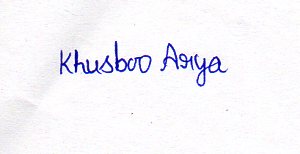 Khusboo Arya